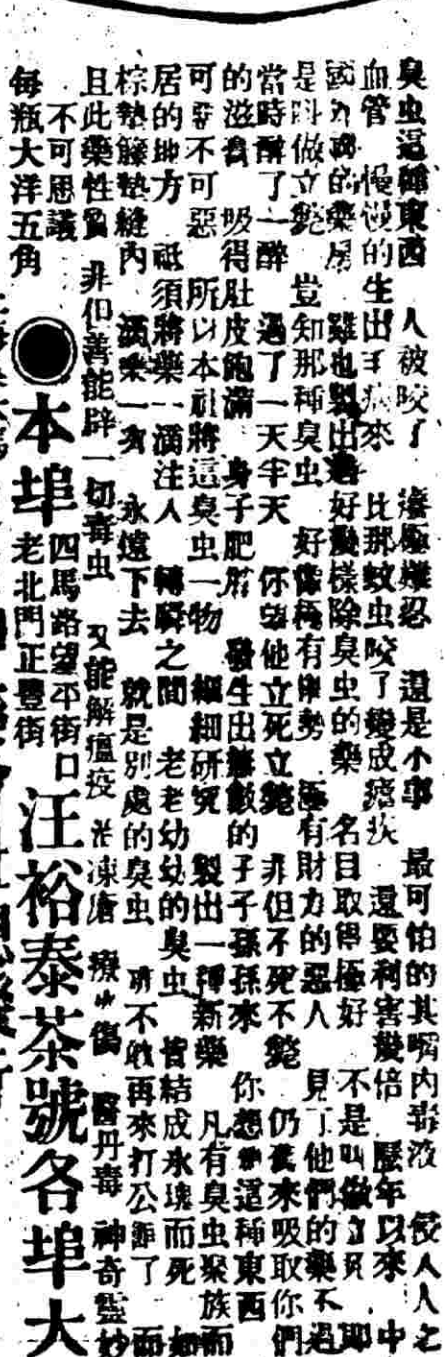 臭虫這種東西 人被咬了 癢極難忍 還是小事 最可怕的其嘴內毒液 侵人人之
血管 慢慢的生出毛病來 比那蚊虫咬了變成瘧疾 還要利害幾倍 歷年以來 中
國的藥房 雖也製出好幾樣除臭虫的藥 名目取得極好 不是叫做立死 即
是叫做立斃 豈知那種臭虫 好像極有勢 有財力的惡人 見了他們的藥不過
當時醉了一醉 過了一天半天 你望他立死立斃 非但不死不斃 仍舊來吸取你們
的滋 吸得肚皮飽滿 身子肥 發生出無數的子子孫孫來 你想這種東西
可惡不可惡 所以本社將這臭虫一物 細細研究 製出一種新藥 凡有臭虫聚族而
居的地方 祗須將藥一滴注人 轉瞬之間 老老幼幼的臭虫 皆結成氷塊而死
棕墊籐墊縫內 滴藥一次 永遠下去 就是別處的臭虫 不敢再來打公館了 而
且此藥性 非但善能辟一切毒虫 又能解瘟疫 凍瘡 療傷 醫丹毒 神奇靈妙
不可思議
每瓶大洋五角
本埠 四馬路望平街口 老北門正豐街 汪裕泰茶號各埠大